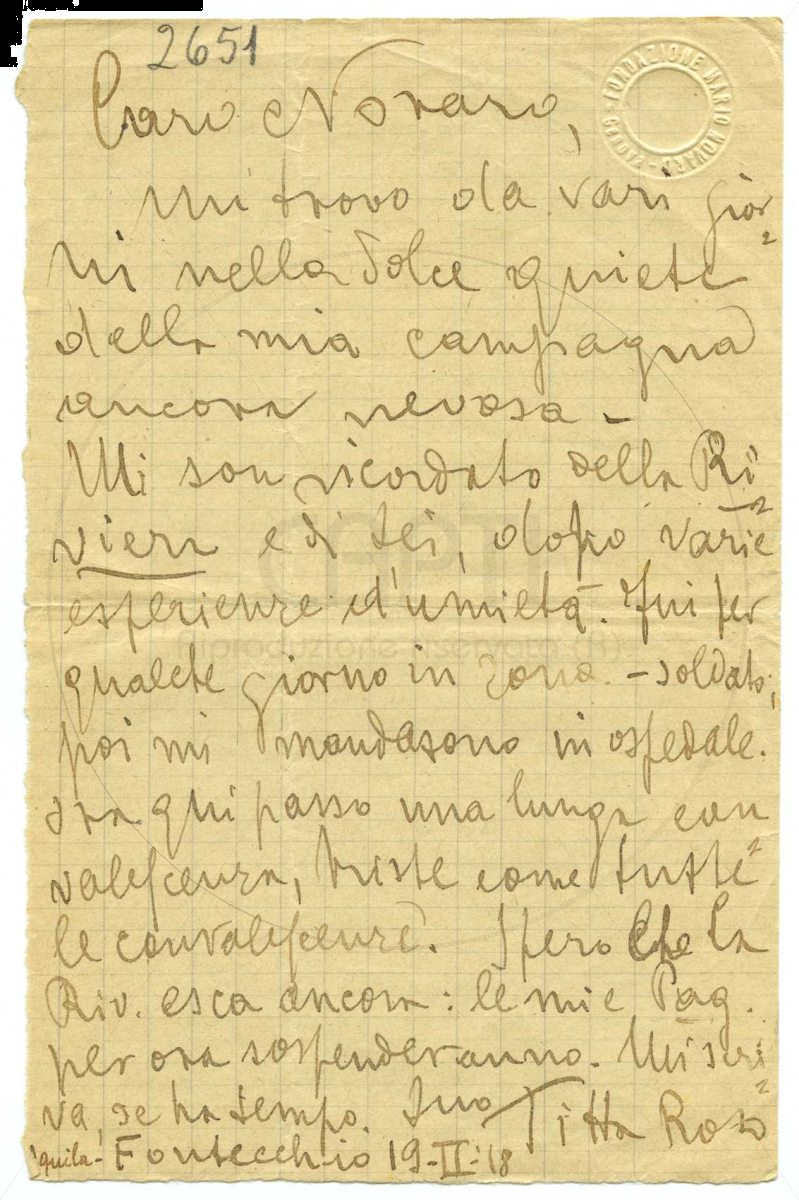 2651
FONDAZIONE MARIO NOVARO
Caro Novaro,
mi trovo da vari gior=
ni nella dolce quiete
della mia campagna
ancora nevosa -
Mi son ricordato della Ri=
viera e di Lei, dopo varie
esperienze d'umiltà. Fui per
qualche giorno in zona - soldato;
poi mi mandarono in ospedale.
Ora qui passo una lunga con=
valescenza, triste come tutte
le convalescenze. Spero che la
Riv. esca ancora: le mie Pag.
per ora sospenderanno. Mi scri=
va, se ha tempo. Suo Titta Rosa
Fontecchio 19-II-18
riproduzione riservata